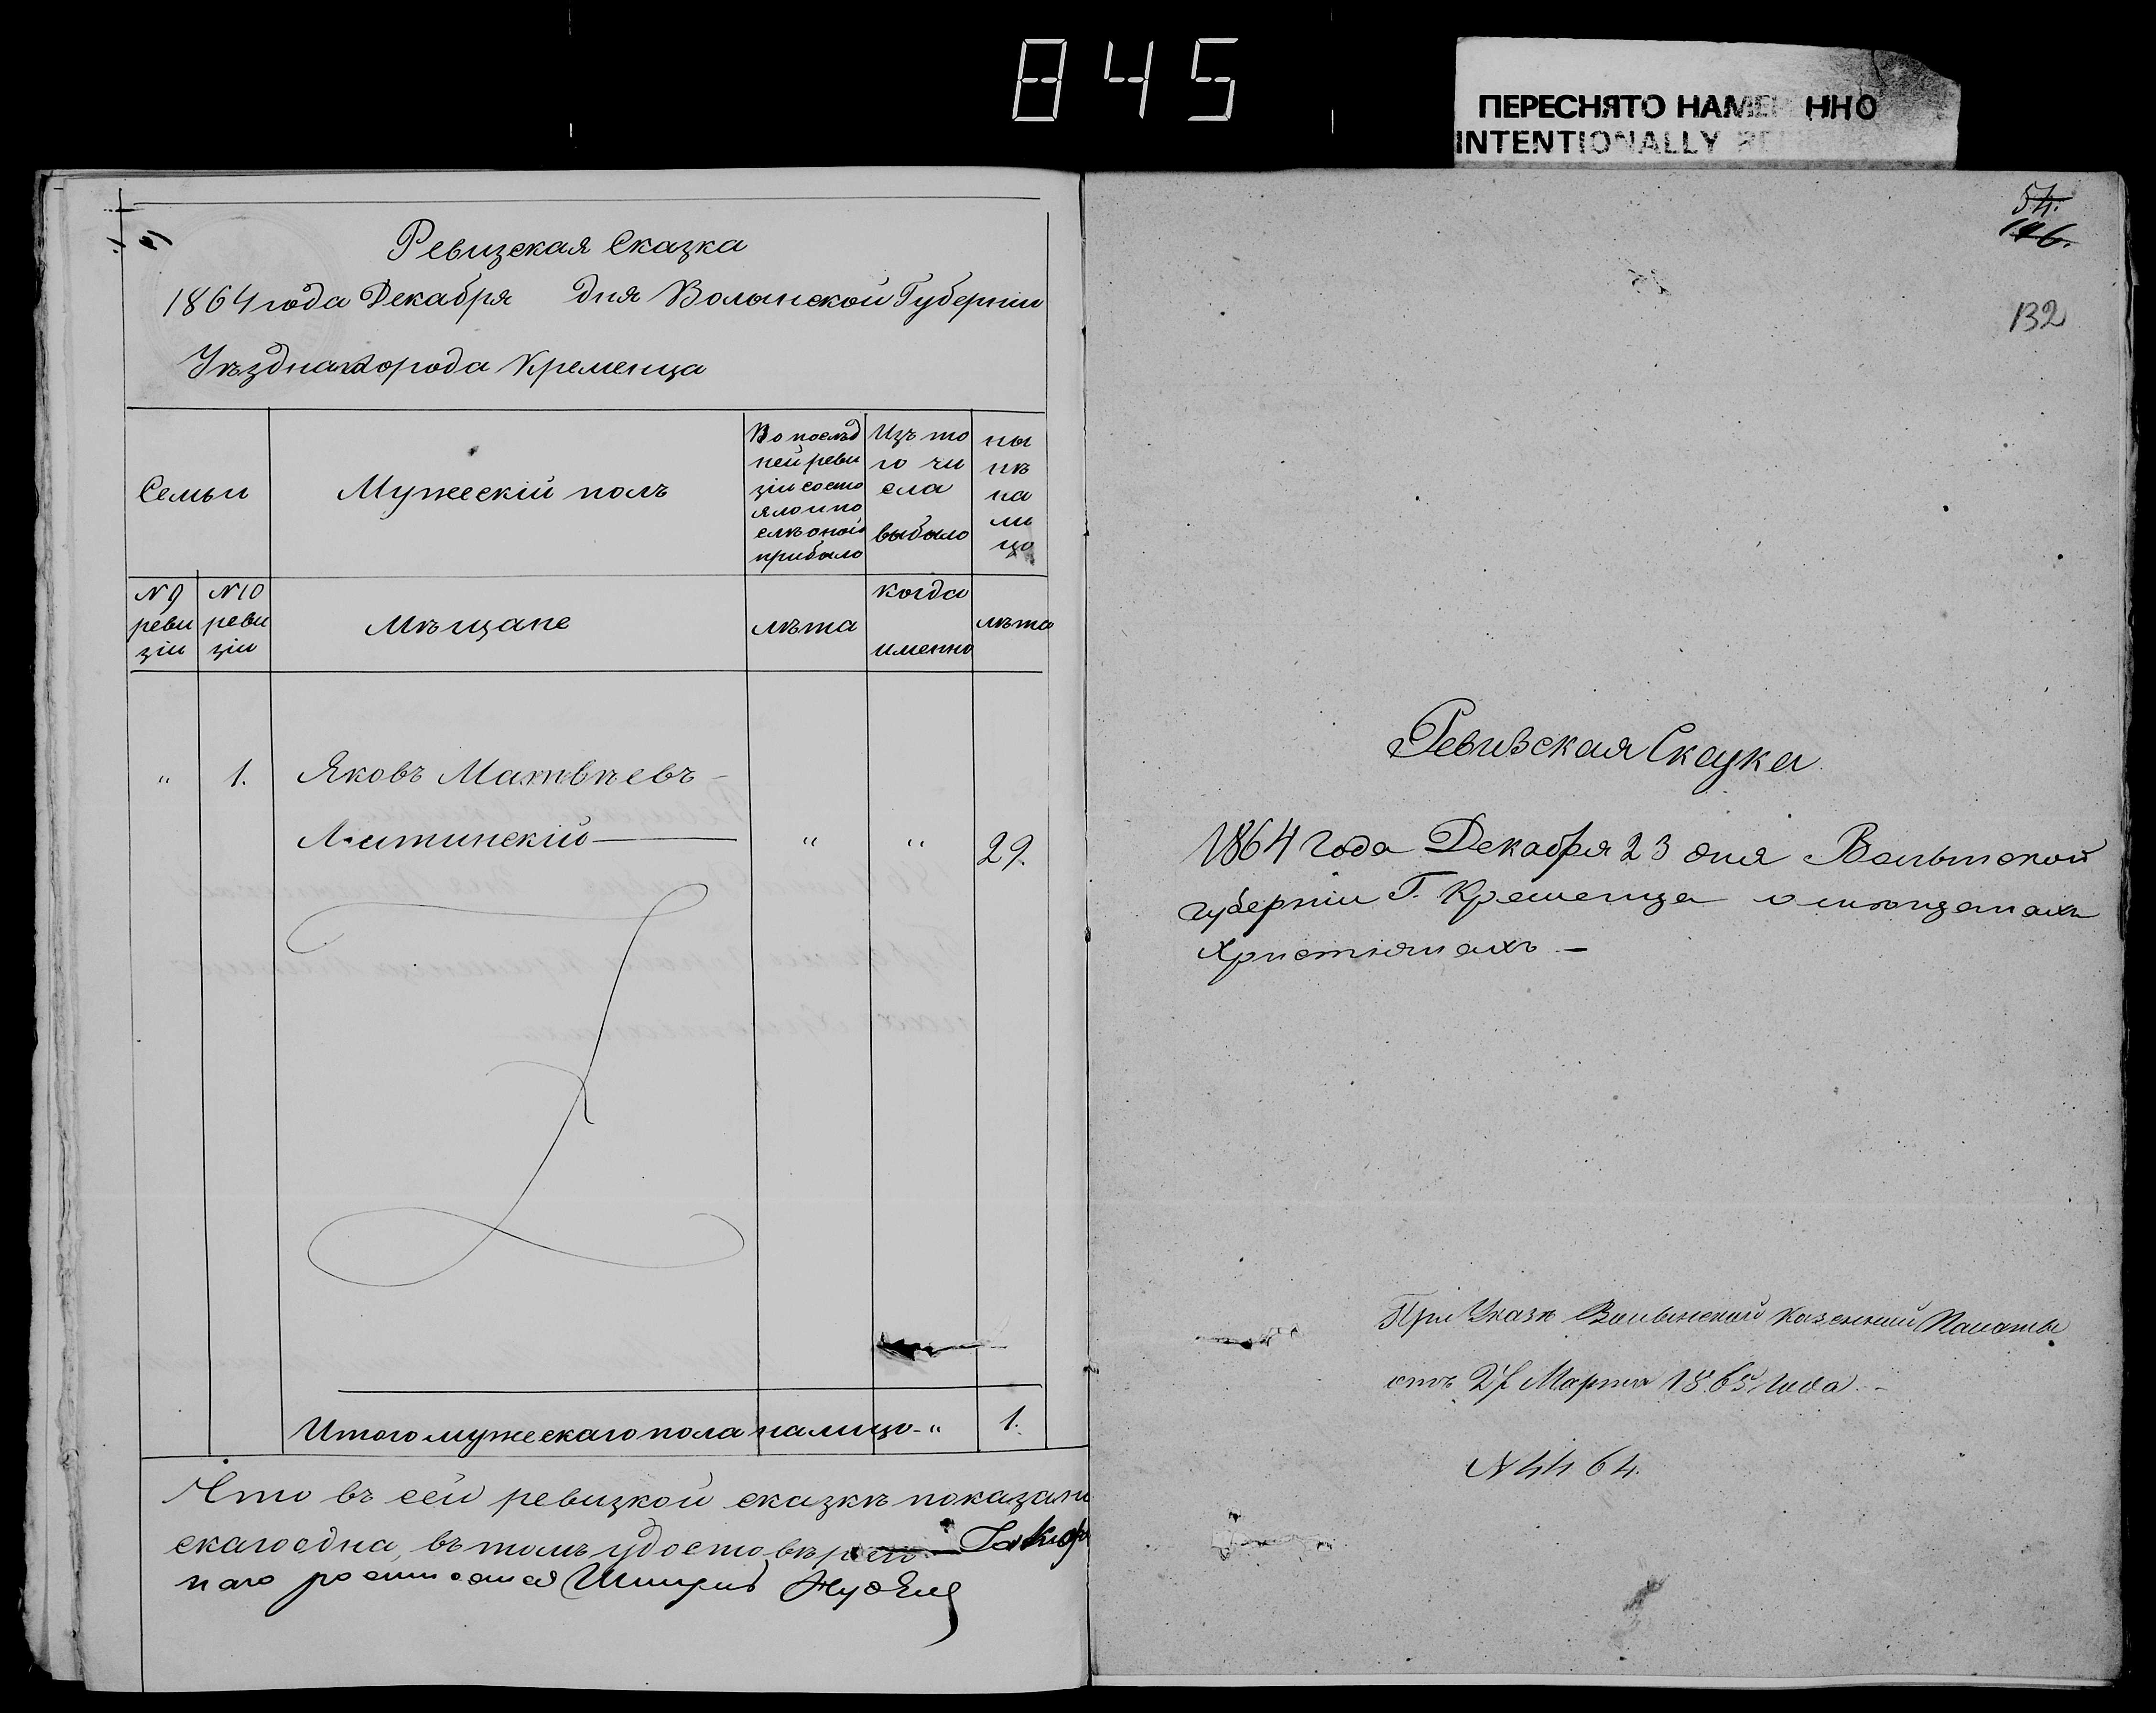 845
ПЕРЕСНЯТО НАМЕР ННО
INTENTIONALLY RE
Ревизская Сказка
1864 года Декабря дня Волынской Губерніи
Уѣзднаго города Кременца
Семьи
Мужескій полъ
Во послѣд
ней реви
зіи состо
яло и по
слѣ оной
прибыло
Изъ то
го чи
сла
выбыло
ны
нѣ
на
ли
цо
N 9
реви
зіи
N 10
реви
зіи
Мѣщане
лѣта
когда
именно
лѣта
" 1. Яковъ Матвѣевъ -
Литинскій " " 29.
Итого мужескаго пола налицо - " 1.
Что въ сей ревизкой сказкѣ показан
скаго одна, въ томъ удостовѣряю
наго росписался
54.
146.
132
Ревизская Сказка
1864 года Декабря 23 дня Волынской
губерніи Г. Кременца о мѣщанахъ
Христіянахъ -
При Указѣ Волынской Казенной Палаты
отъ Марта 1865 года. -
N 4464.